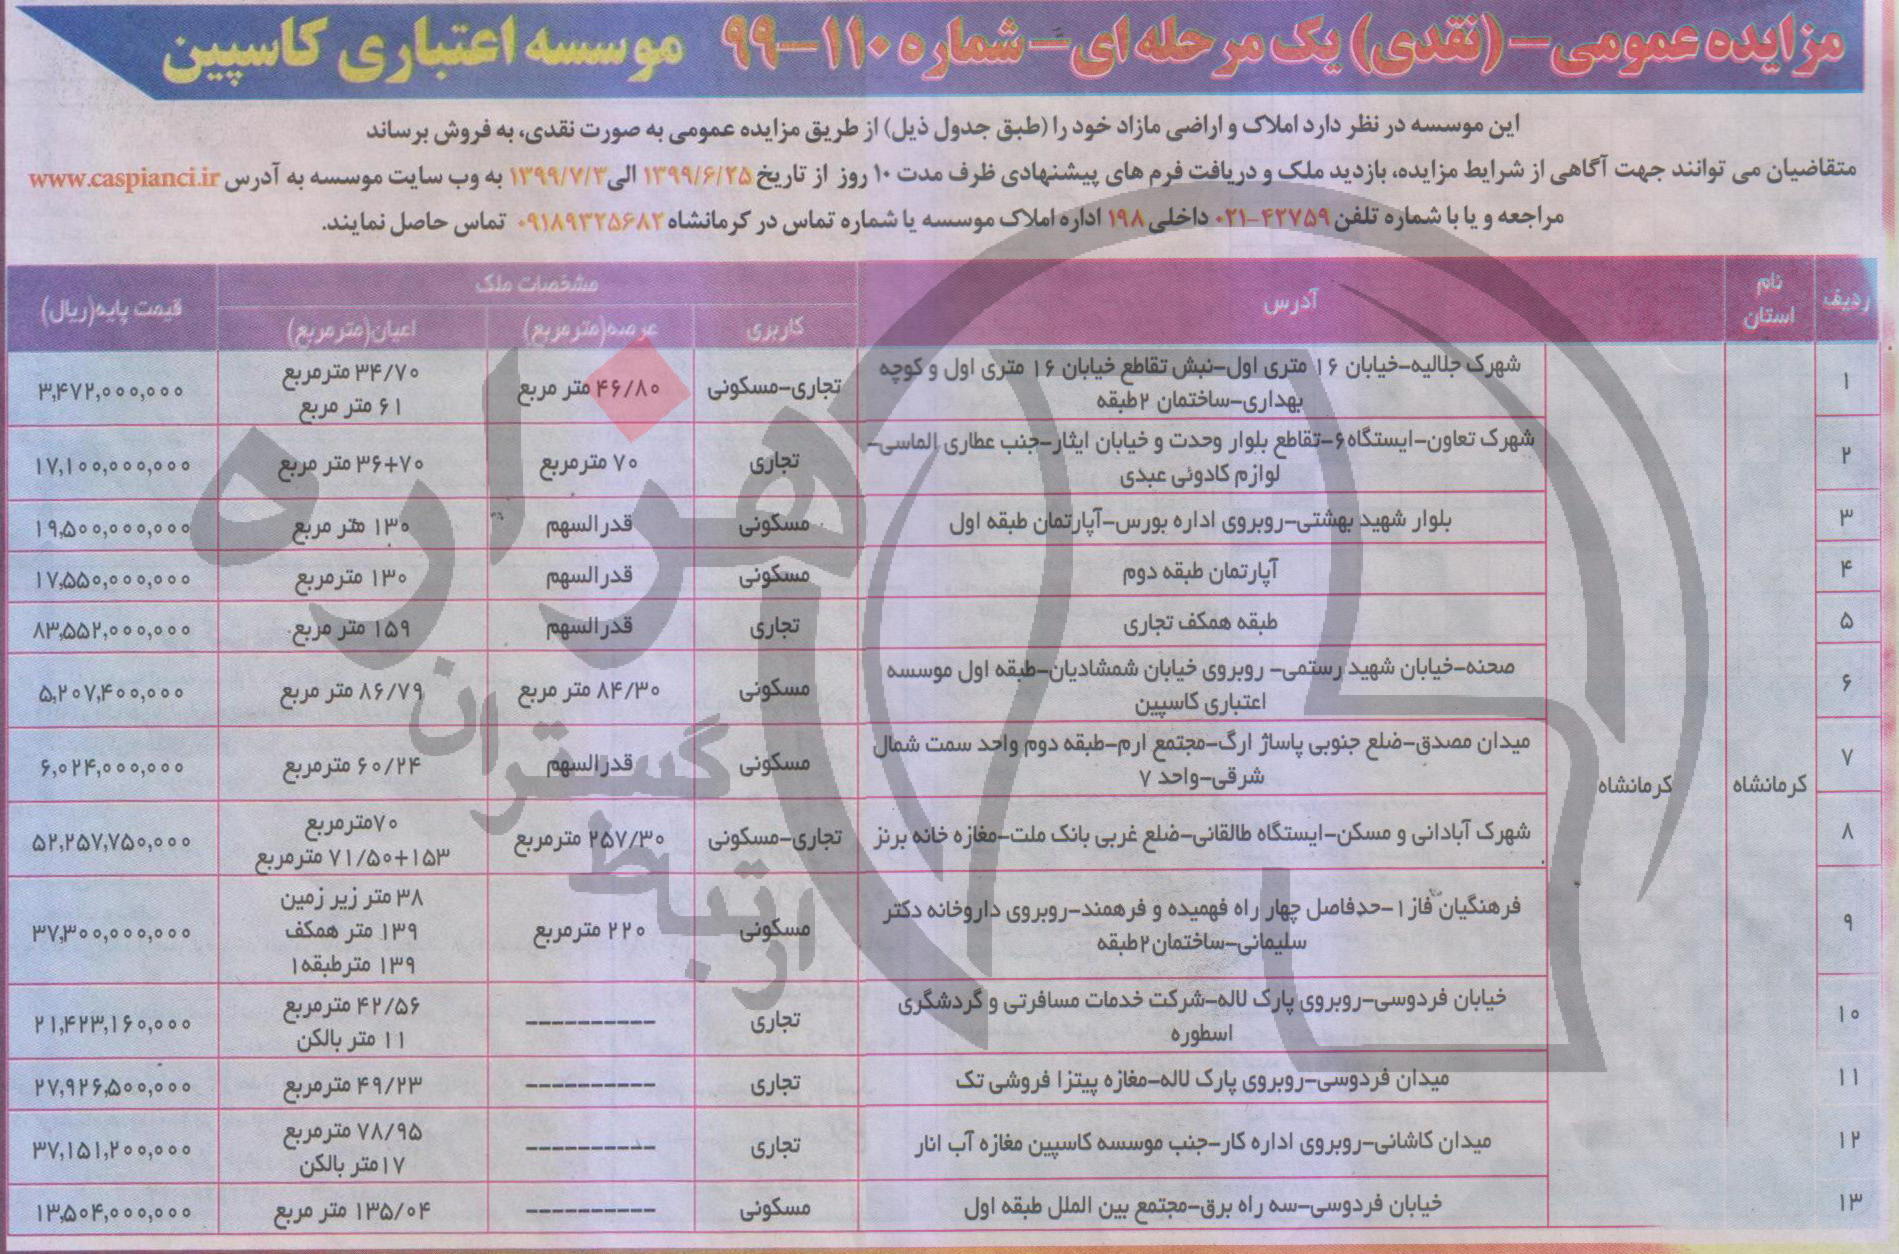 مزایده عمومی-(نقدی) یک مرحله ای-شماره ۱۱۰-۹۹ موسسه اعتباری کاسپین
این موسسه در نظر دارد املاک و اراضی مازاد خود را (طبق جدول ذیل) از طریق مزایده عمومی به صورت نقدی، به فروش برساند
متقاضیان می توانند جهت آگاهی از شرایط مزایده، بازدید ملک و دریافت فرم های پیشنهادی ظرف مدت ۱۰ روز از تاریخ ۱۳۹۹/۶/۲۵ الی ۱۳۹۹/۷/۳ به وب سایت موسسه به آدرس www.caspianci.ir
مراجعه و یا با شماره تلفن ۴۲۷۵۹-۰۲۱ داخلی ۱۹۸ اداره املاک موسسه یا شماره تماس در کرمانشاه ۰۹۱۸۹۳۲۵۶۸۲ تماس حاصل نمایند.
ردیف نام استان آدرس مشخصات ملک قیمت پایه(ریال)
کاربری عرصه(مترمربع) اعیان(مترمربع)
کرمانشاه کرمانشاه
۱ شهرک جلالیه-خیابان ۱۶ متری اول-نبش تقاطع خیابان ۱۶ متری اول و کوچه تجاری-مسکونی ۴۶/۸۰ متر مربع ۳۴/۷۰ مترمربع ۳,۴۷۲,۰۰۰,۰۰۰
بهداری-ساختمان ۲طبقه ۶۱ متر مربع
۲ شهرک تعاون-ایستگاه۶-تقاطع بلوار وحدت و خیابان ایثار-جنب عطاری الماسی- تجاری ۷۰ مترمربع ۳۶+۷۰ متر مربع ۱۷,۱۰۰,۰۰۰,۰۰۰
لوازم کادوئی عبدی
۳ بلوار شهید بهشتی-روبروی اداره بورس-آپارتمان طبقه اول مسکونی قدرالسهم ۱۳۰ متر مربع ۱۹,۵۰۰,۰۰۰,۰۰۰
۴ آپارتمان طبقه دوم مسکونی قدرالسهم ۱۳۰ مترمربع ۱۷,۵۵۰,۰۰۰,۰۰۰
۵ طبقه همکف تجاری تجاری قدرالسهم ۱۵۹ متر مربع ۸۳,۵۵۲,۰۰۰,۰۰۰
۶ صحنه-خیابان شهید رستمی- روبروی خیابان شمشادیان-طبقه اول موسسه مسکونی ۸۴/۳۰ متر مربع ۸۶/۷۹ متر مربع ۵,۲۰۷,۴۰۰,۰۰۰
اعتباری کاسپین
۷ میدان مصدق-ضلع جنوبی پاساژ ارگ-مجتمع ارم-طبقه دوم واحد سمت شمال مسکونی قدرالسهم ۶۰/۲۴ مترمربع ۶,۰۲۴,۰۰۰,۰۰۰
شرقی-واحد ۷
۸ شهرک آبادانی و مسکن-ایستگاه طالقانی-ضلع غربی بانک ملت-مغازه خانه برنز تجاری-مسکونی ۲۵۷/۳۰ مترمربع ۷۰مترمربع ۵۲,۲۵۷,۷۵۰,۰۰۰
۷۱/۵۰+۱۵۳ مترمربع
۹ فرهنگیان فاز۱-حدفاصل چهار راه فهمیده و فرهمند-روبروی داروخانه دکتر مسکونی ۲۲۰ مترمربع ۳۸ متر زیر زمین ۳۷,۳۰۰,۰۰۰,۰۰۰
سلیمانی-ساختمان۲طبقه ۱۳۹ متر همکف
۱۳۹ مترطبقه۱
۱۰ خیابان فردوسی-روبروی پارک لاله-شرکت خدمات مسافرتی و گردشگری تجاری ---------- ۴۲/۵۶ مترمربع ۲۱,۴۲۳,۱۶۰,۰۰۰
اسطوره ۱۱ متر بالکن
۱۱ میدان فردوسی-روبروی پارک لاله-مغازه پیتزا فروشی تک تجاری ---------- ۴۹/۲۳ مترمربع ۲۷,۹۲۶,۵۰۰,۰۰۰
۱۲ میدان کاشانی-روبروی اداره کار-جنب موسسه کاسپین مغازه آب انار تجاری ---------- ۷۸/۹۵ مترمربع ۳۷,۱۵۱,۲۰۰,۰۰۰
۱۷متر بالکن
۱۳ خیابان فردوسی-سه راه برق-مجتمع بین الملل طبقه اول مسکونی ---------- ۱۳۵/۰۴ متر مربع ۱۳,۵۰۴,۰۰۰,۰۰۰
هزاره
ارتباط گستران